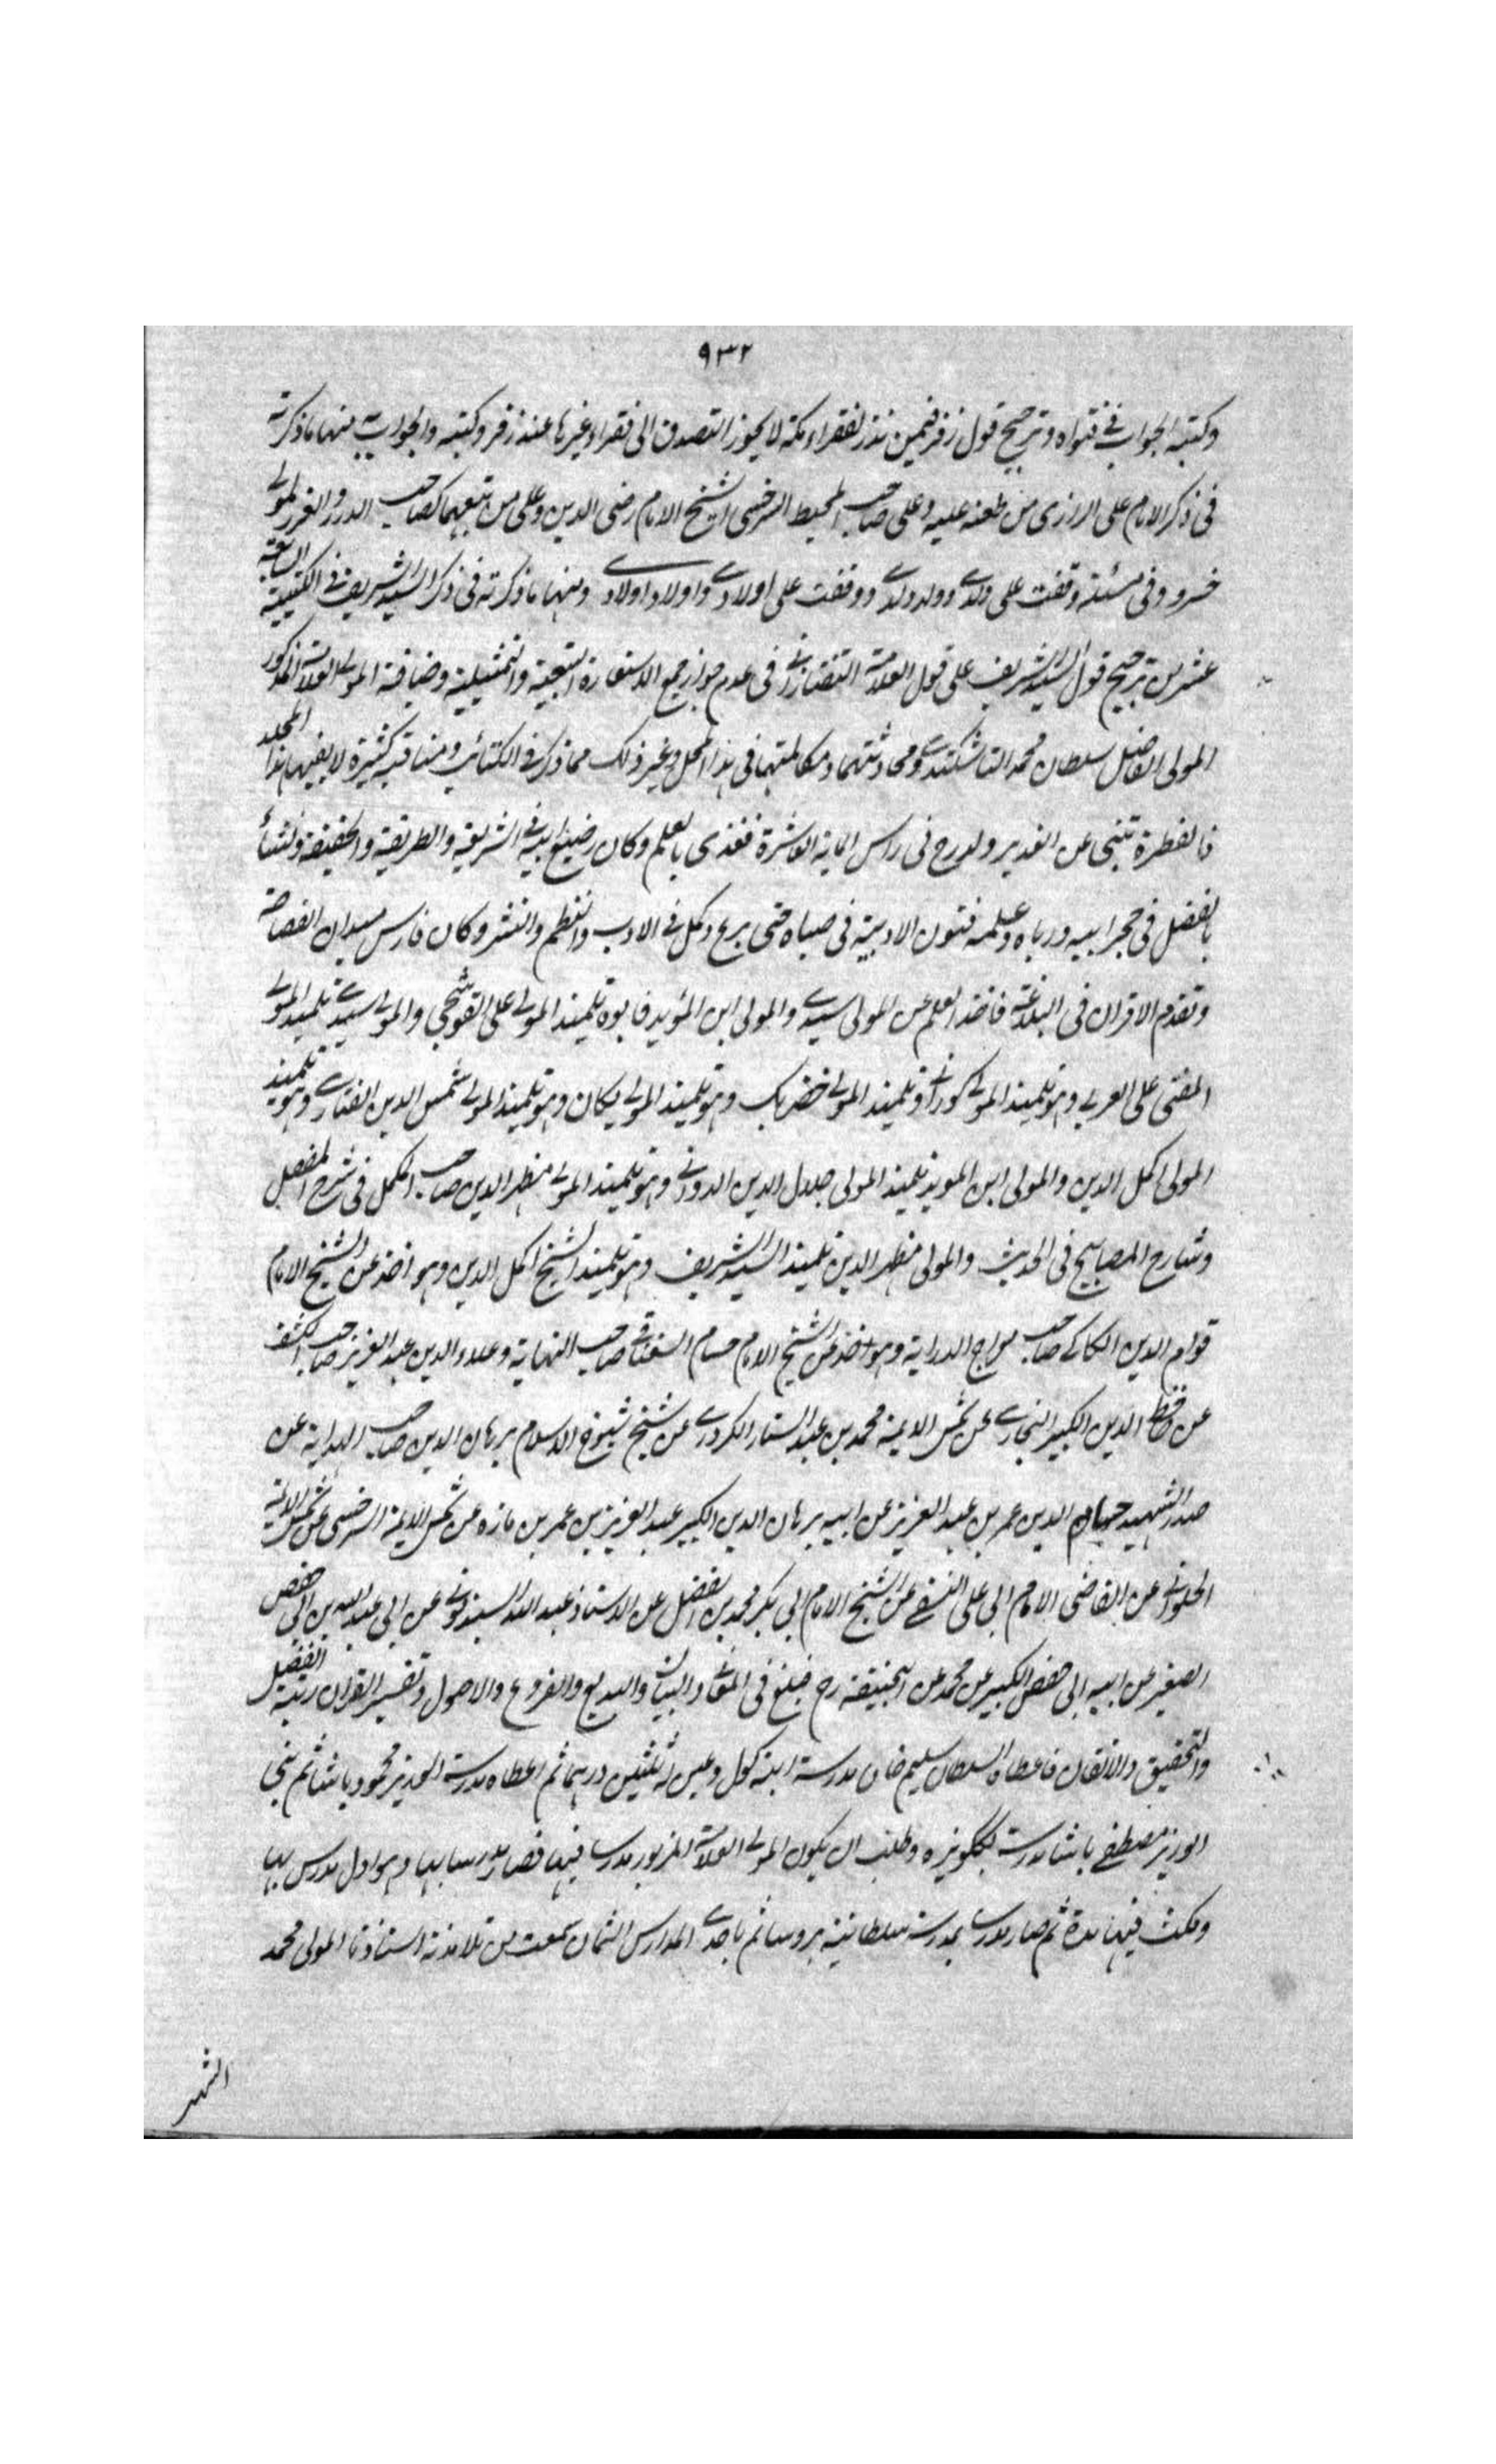 ٩٣٢
وكتبه الجواب في فتواه وترجيح قول زفر فيمن نذر لفقراء مكة لا يجوز التصدق الى فقراء غيرها عند زفر وكتبه والجواب منها ما ذكرته
في ذكر الامام على الرازى من طعنه عليه وعلى صاحب المحيط السرخسى الشيخ الامام رضى الدين وعلى من تبعهما كصاحب الدرر والغرر المولى
خسرو وفى مسئلة وقفت على ولدى وولد ولدى ووقفت على اولادى واولاد اولادى ومنها ما ذكرته فى ذكر السيد الشريف في الكتيبة السابعة
عشر من ترجيح قول السيد الشريف على قول العلامة التفتازانى فى عدم جواز جمع الاستعارة التبعية والتمثيلية وضيافة المولى العلامة المذكور
المولى الفاضل سلطان محمد التاشكندى ومحادثتهما ومكالمتهما فى هذا المحل وغير ذلك مما ذكر فى الكتائب ومناقبه كثيرة لا يفيها هذا المجلد
فالقطرة تنبى عن الغدير ولد رح فى راس الماية العاشرة فغذى بالعلم وكان رضيع ابيه فى الشريعة والطريقة والحقيقة ونشأ
بالفضل فى حجر ابيه ورباه وعلمه فنون الادبية فى صباه حتى برع وكمل فى الادب والنظم والنثر وكان فارس ميدان الفصاحة
وتقدم الاقران فى البلاغة فاخذ العلم عن المولى سيدى والمولى ابن المؤيد فابوه تلميذ المولى على القوشجى والمولى سيدى تلميذ المولى
المفتى على العربى وهو تلميذ المولى كورانى وتلميذ المولى خضربك وهو تلميذ المولى يكان وهو تلميذ المولى شمس الدين الفنارى وهو تلميذ
المولى اكمل الدين والمولى ابن المويد تلميذ المولى جلال الدين الدوانى وهو تلميذ المولى مظهر الدين صاحب المكمل فى شرح المفصل
وشارح المصابيح فى الحديث والمولى مظهر الدين تلميذ السيد الشريف وهو تلميذ الشيخ اكمل الدين وهو اخذ عن الشيخ الامام
قوام الدين الكاكى صاحب معراج الدراية وهو اخذ عن الشيخ الامام حسام السغناقى صاحب النهاية وعلاء الدين عبد العزيز صاحب الكشف
عن حافظ الدين الكبير البخارى عن شمس الايمة محمد بن عبد الستار الكردرى عن شيخ شيوخ الاسلام برهان الدين صاحب الهداية عن
صدر الشهيد حسام الدين عمر بن عبد العزيز عن ابيه برهان الدين الكبير عبد العزيز بن عمر بن مازه عن شمس الايمة السرخسى عن شمس الايمة
الحلوانى عن القاضى الامام ابى على النسفى عن الشيخ الامام ابى بكر محمد بن الفضل عن الاستاذ عبد الله السبذمونى عن ابى عبد الله بن ابى حفص
الصغير عن ابيه ابى حفص الكبير عن محمد عن ابيحنيفة رح فبلغ فى المعانى والبيان والبديع والفروع والاصول وتفسير القران رتبة الفضل
والتحقيق والاتقان فاعطاه السلطان سليم خان مدرسة اينه كول وعين له ثلثين درهما ثم اعطاه مدرسة الوزير محمود باشا ثم بنى
الوزير مصطفى باشا مدرسة بككويزه وطلب ان يكون المولى العلامة المزبور مدرسا فيها فصار مدرسا بها وهو اول مدرس بها
ومكث فيها مدة ثم صار مدرسا بمدرسة سلطانية بروسا ثم باحدى المدارس الثمان سمعت من تلامذته استاذنا المولى محمد
الشهير